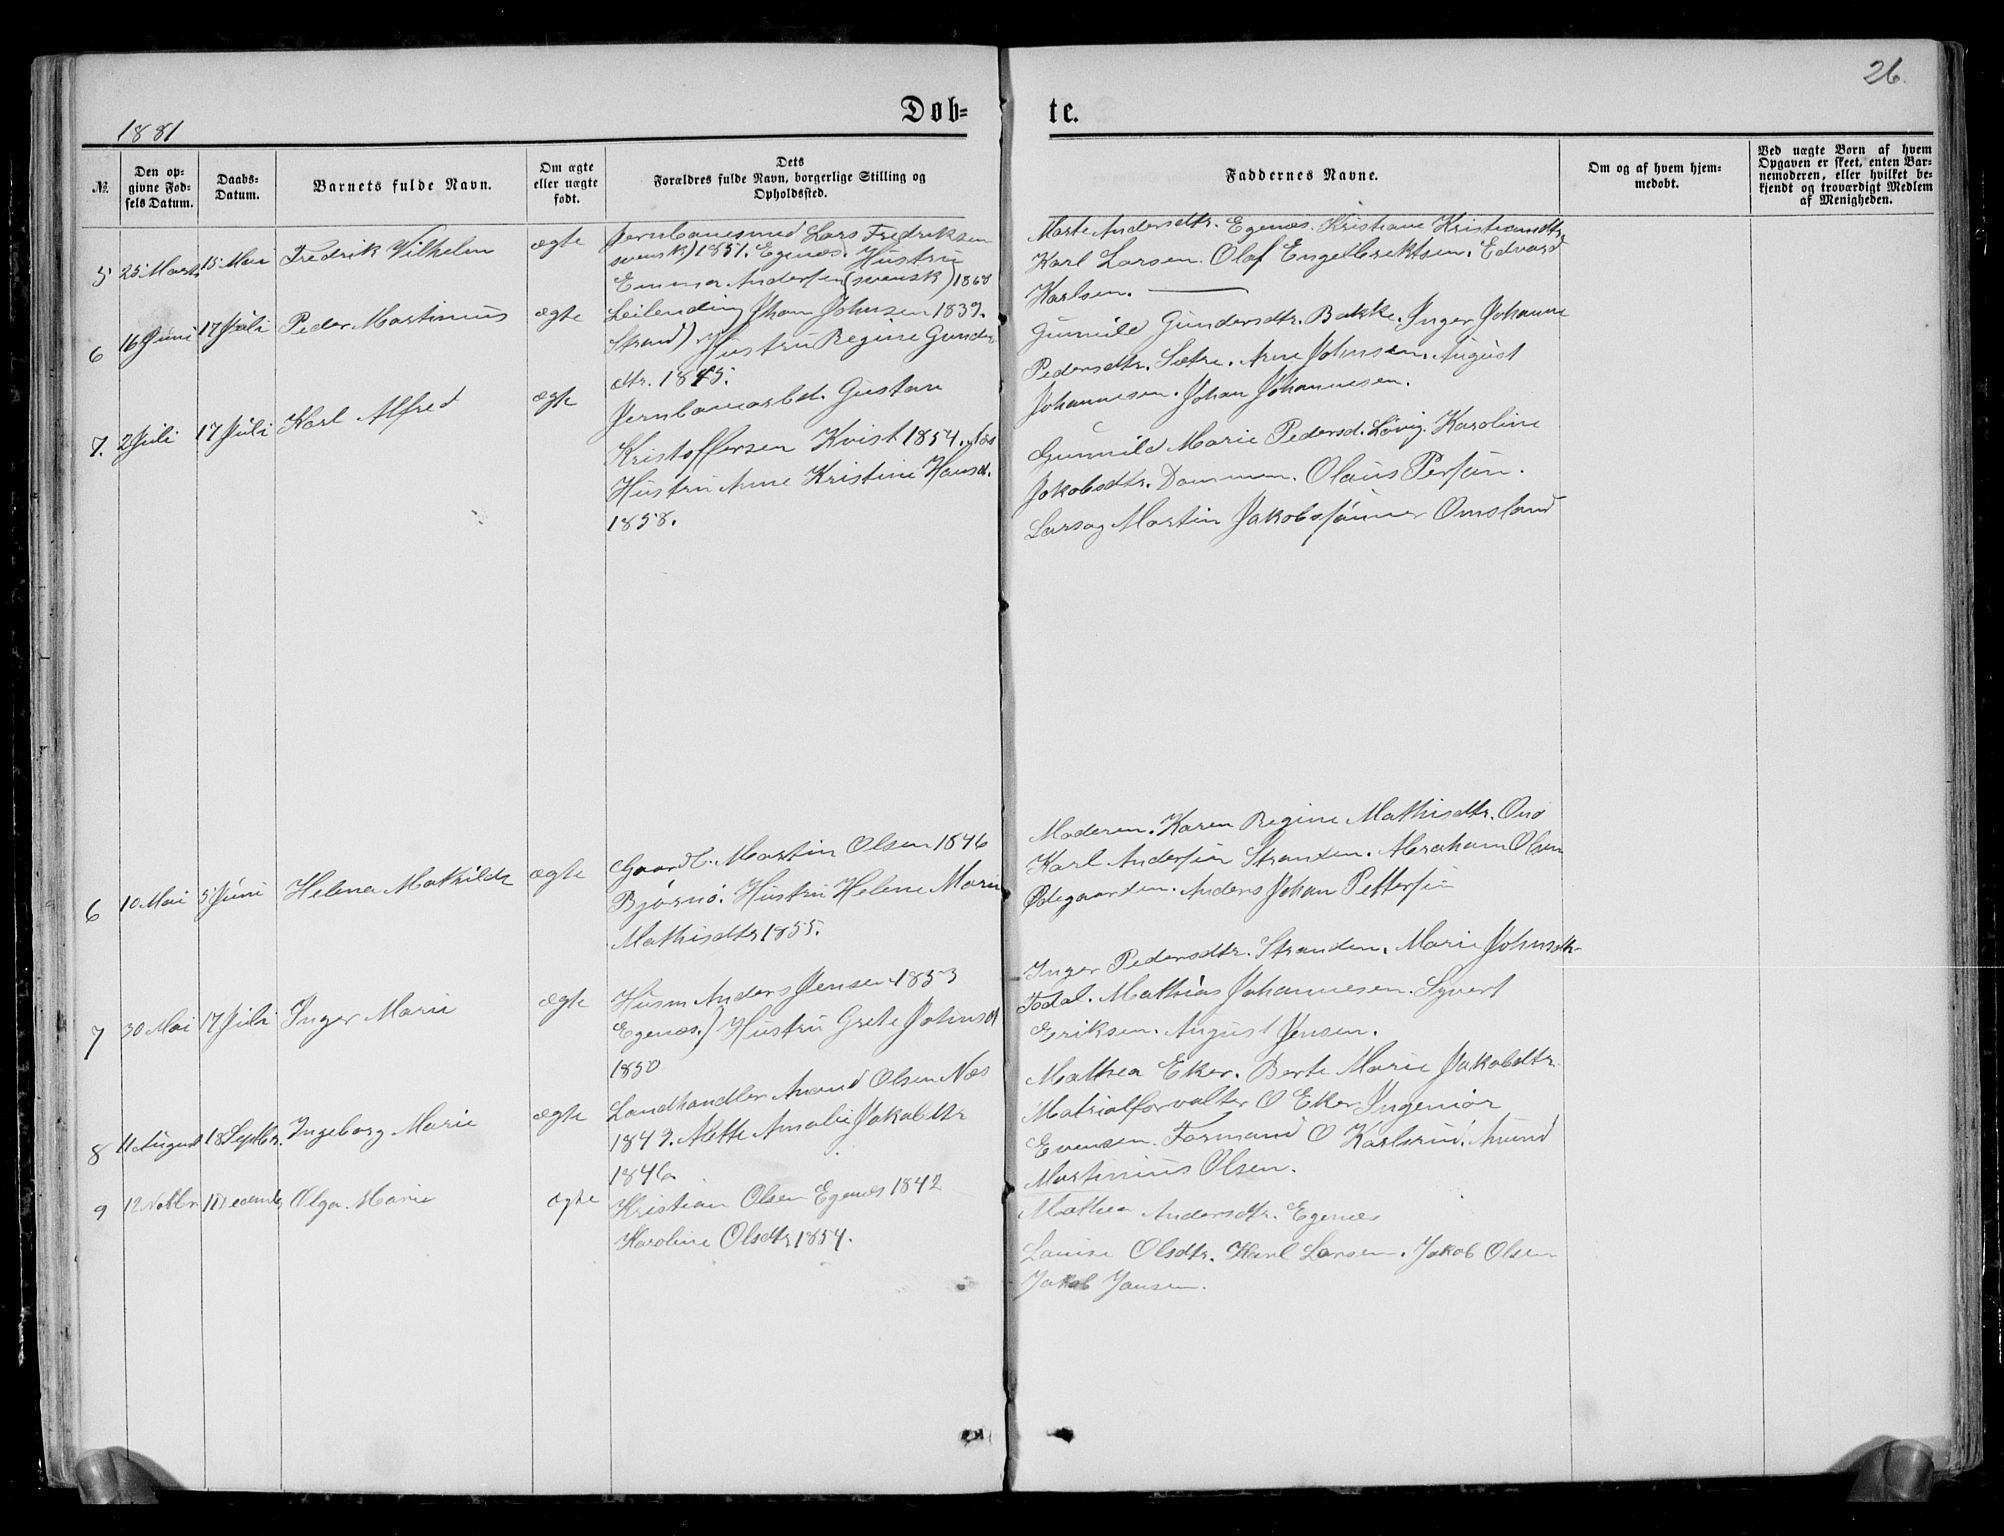 26
Døb-
te.
1881
№
Den op-
givne Fød-
sels Datum.
Daabs-
Datum.
Barnets fulde Navn.
Om ægte
eller uægte
født.
Dets
Forældres fulde Navn, borgerlige Stilling og
Opholdssted.
Faddernes Navne.
Om og af hvem hjem-
medøbt.
Ved uægte Børn af hvem
Opgaven er skeet, enten Bar-
nemoderen, eller hvilket be-
kjendt og troværdigt Medlem
af Menigheden.
5 25 Marts 15 Mai Fredrik Vilhelm ægte
Jernbanesmed Lars Fredriksen
svensk) 1851. Egenæs. Hustru
Emma Andersen (svensk)
Marte Andersdtr. Egenæs. Kristiane Kristiansdtr.
Karl Larsen. Olaf Engelbriktsen. Edvard
Karlsen.
6 16 Juni 17 Juli Peder Martinius ægte
Leilending Jhan Johnsen 1839.
Strand) Hustru Regine Gunder
dtr. 1845.
Gunnild Gundersdtr. Bakke. Inger Johanne
Pedersdtr. Sætre. Arne Johnsen. August
Johannesen. Johan Johannesen.
7. 2 Juli 17 Juli Karl Alfred ægte
Jernbanearbd. Gustav
Kristoffersen Kvist 1854. Næs
Hustru Anne Kristine Hansd.
1858.
Gunnild Marie Pedersd. Løvig. Karoline
Jakobsdtr. Dammen. Olaus Persøn.
Lars og Martin Jakobsønner Omsland
6 10 Mai 5 Juni Helena Mathilde ægte
Gaardb. Martin Olsen 1846
Bjørnø. Hustru Helene Marie
Mathisdtr 1855.
Moderen. Karen Regine Mathisdtr. Onø
Karl Andersøn Stranden. Abraham Olsen
Ødegaarden. Anders Johan Pettersøn
7 30 Mai 17 Juli Inger Marie ægte
Husm Anders Jensen 1853
Egenæs.) Hustru Grete Johnsd
1850
Inger Pedersdtr. Stranden. Marie Johnsdtr
Fodal. Mathias Johannesen. Syvert
Eriksen. August Jensen.
8 11 August 18 Septbr. Ingeborg Marie ægte
Landhandler Anund Olsen Næs
1849. Mette Amalie Jakobdtr
1846
Mathea Eker. Berte Marie Jakobdtr.
Matrialforvalter O Eker Ingeniør
Evensen. Formand O Karlsrud. Anund
Martinius Olsen.
9 12 Novbr 11 Decemb Olga Marie ægte
Kristian Olsen Egenæs 1842
Karoline Olsdtr 1854.
Mathea Andersdtr. Egenæs
Louise Olsdtr. Karl Larsen. Jakob Olsen
Jakob Jansen.